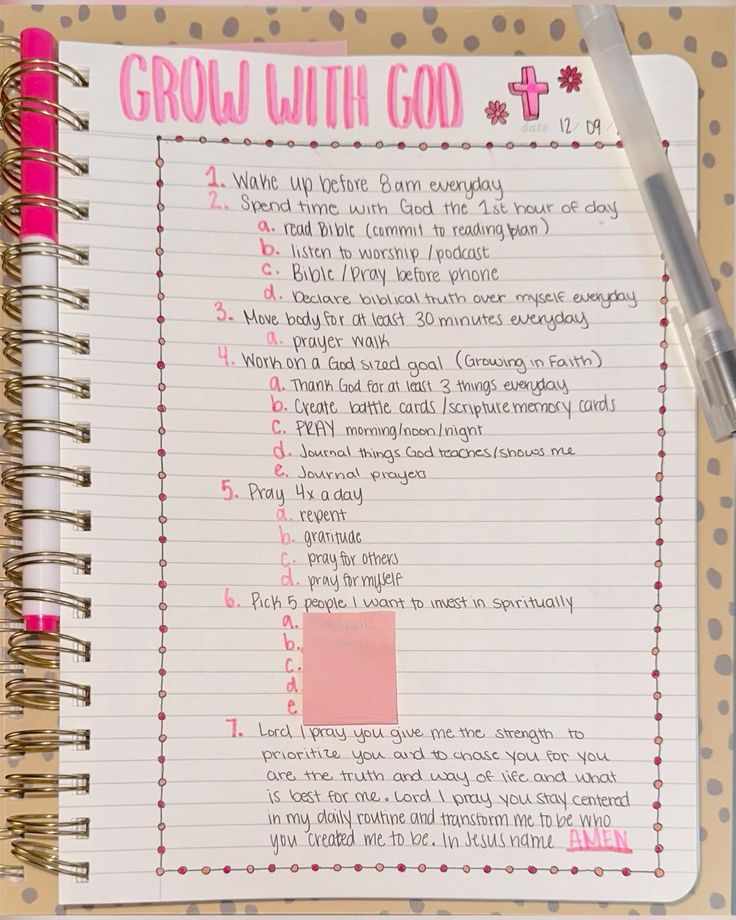 GROW WITH GOD
date 12 / 09 /
1. Wake up before 8am everyday
2. Spend time with God the 1st hour of day
a. read Bible (commit to reading plan)
b. listen to worship / podcast
c. Bible / Pray before phone
d. Declare biblical truth over myself everyday
3. Move body for at least 30 minutes everyday
a. prayer walk
4. Work on a God sized goal (Growing in Faith)
a. Thank God for at least 3 things everyday
b. Create battle cards / scripture memory cards
c. PRAY morning/noon/night
d. Journal things God teaches/shows me
e. Journal prayers
5. Pray 4x a day
a. repent
b. gratitude
c. pray for others
d. pray for myself
6. Pick 5 people I want to invest in spiritually
a.
b.
c.
d
e
7. Lord I pray you give me the strength to
prioritize you and to chase you for you
are the truth and way of life and what
is best for me. Lord I pray you stay centered
in my daily routine and transform me to be who
you created me to be. In Jesus name AMEN